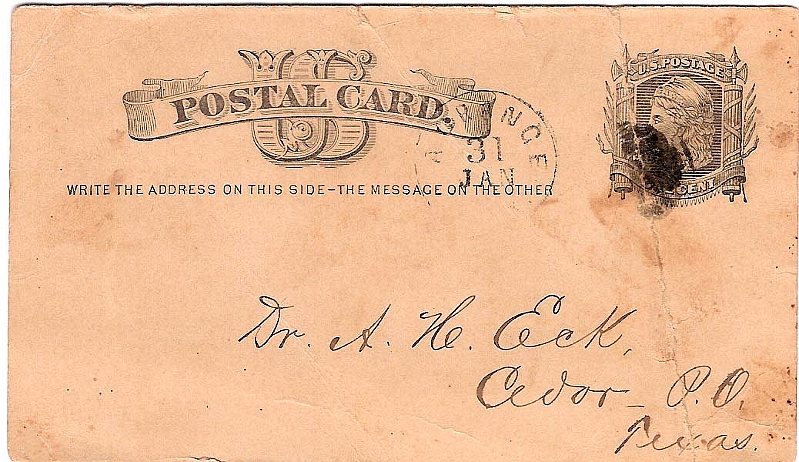 US
POSTAL CARD.
WRITE THE ADDRESS ON THIS SIDE–THE MESSAGE ON THE OTHER
31
JAN
U.S. POSTAGE
CENT
Dr. A. H. Eck,
Cedor P.O.
Texas.